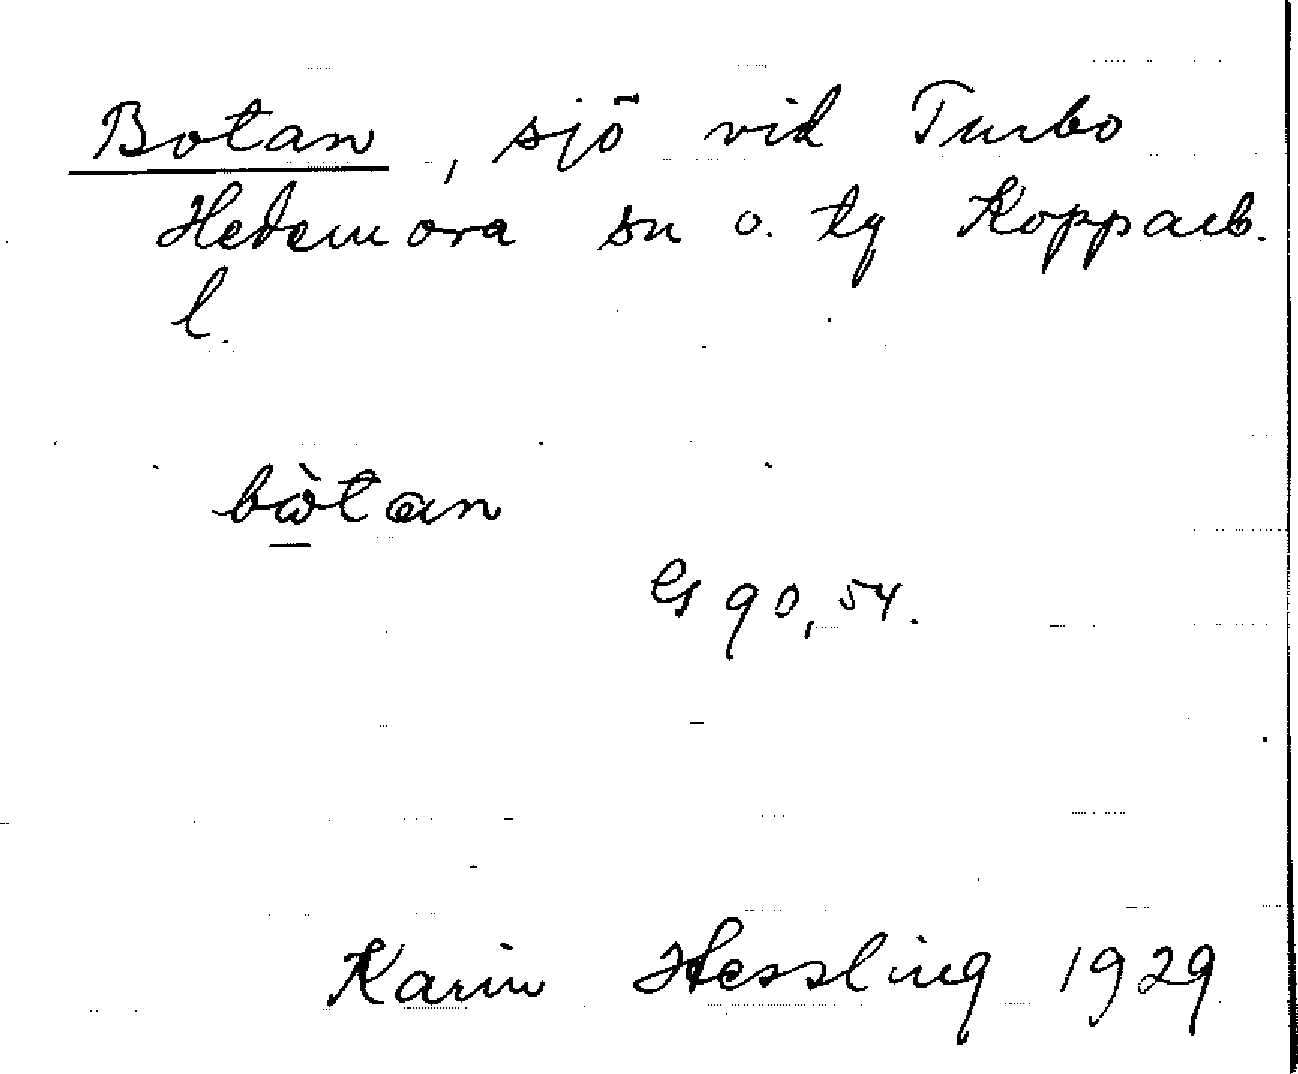 Botan, sjö vid Turbo
Hedemora sn o. tg Kopparb.
l.
bὼtan
Gs 90, 54.
Karin Hessling 1929